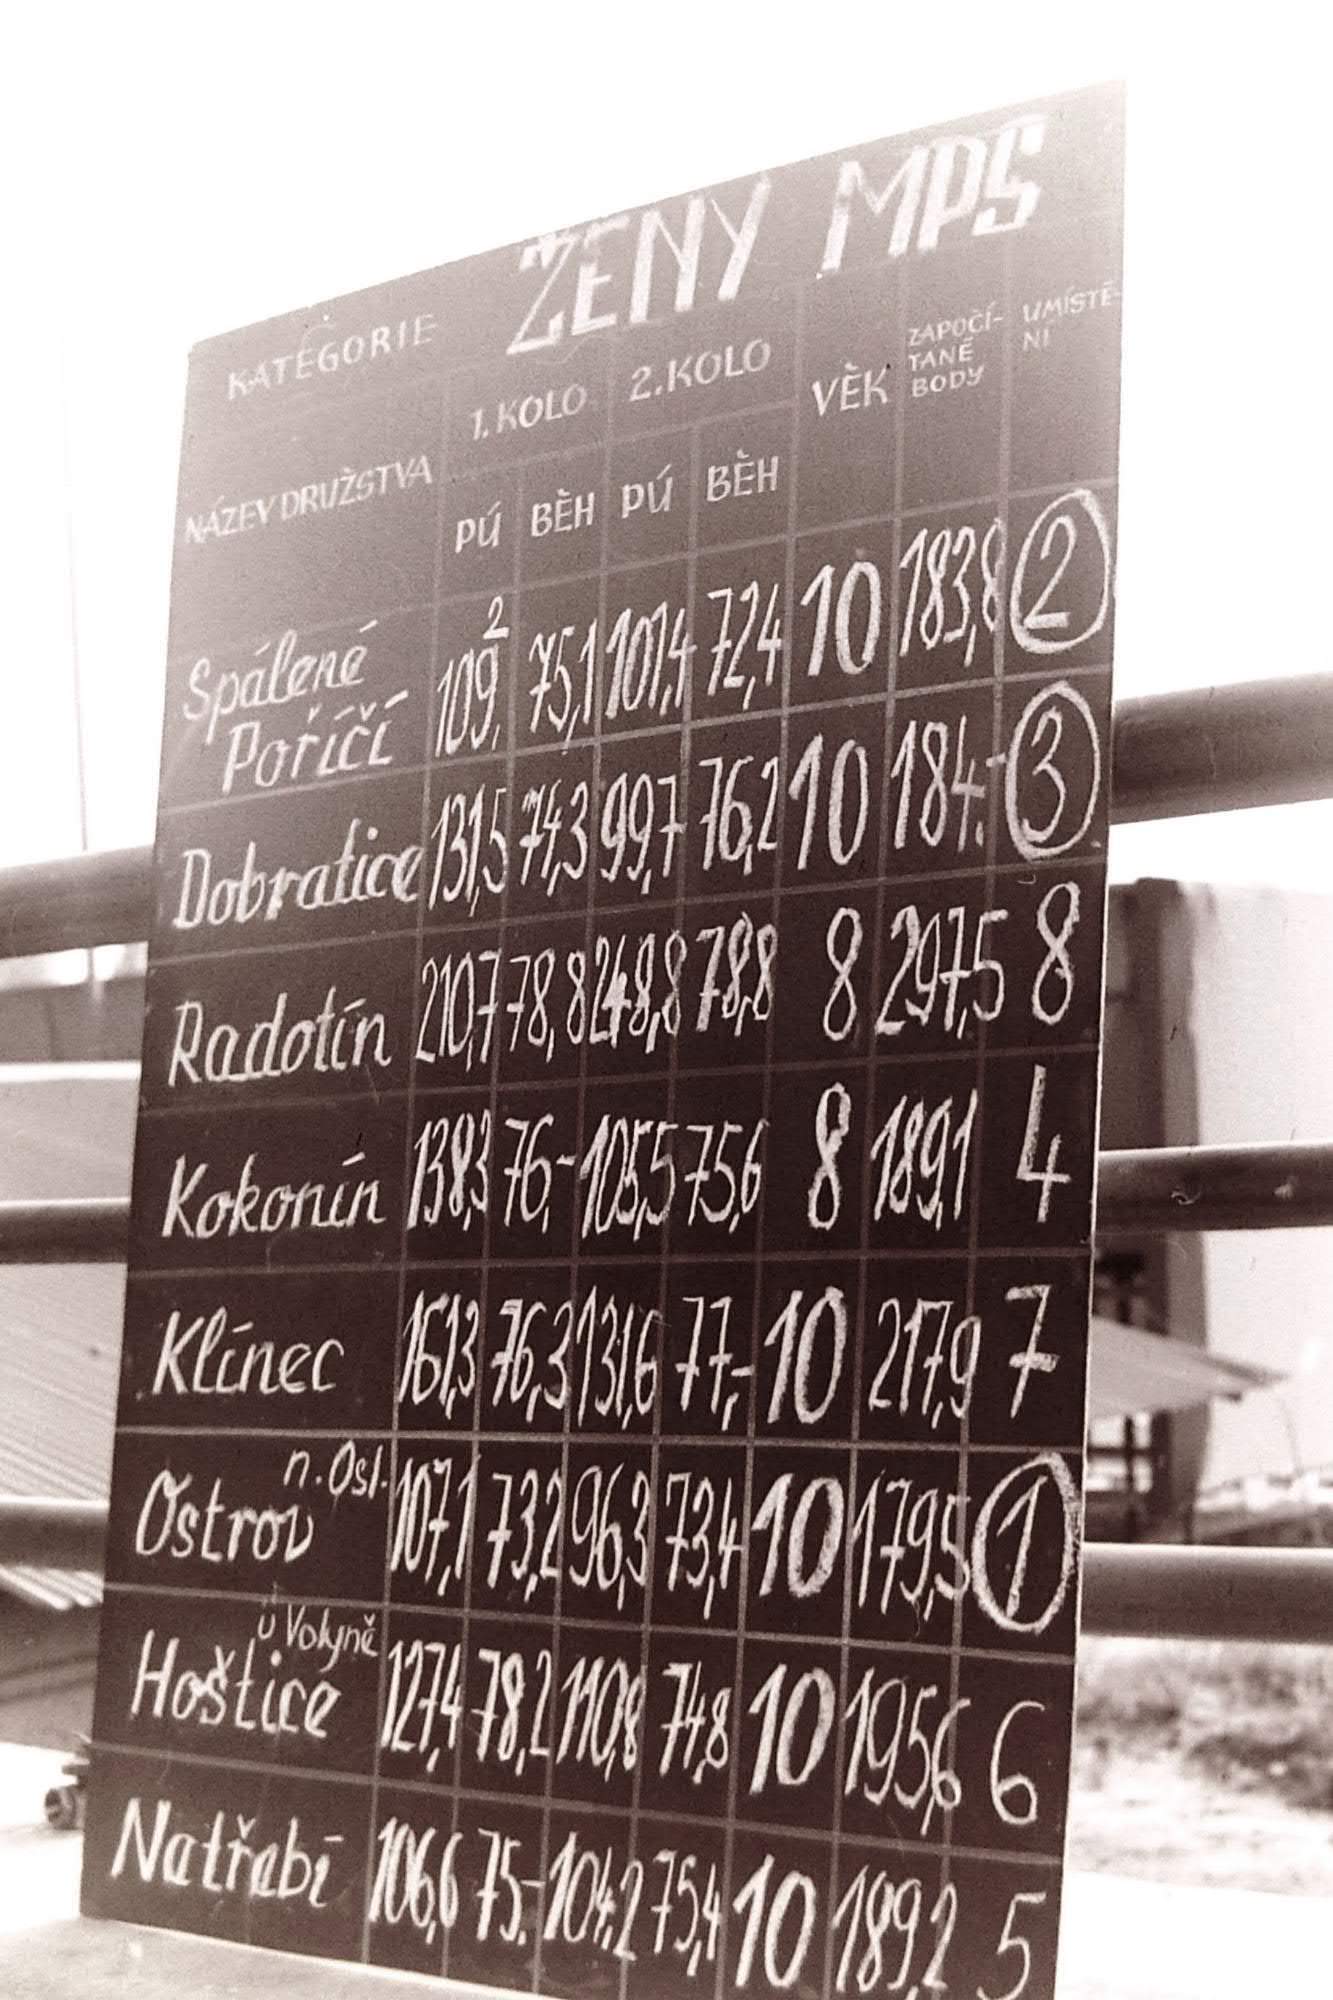 KATEGORIE ŽENY MPS
NÁZEV DRUŽSTVA 1. KOLO 2. KOLO VĚK ZAPOČÍ- UMÍSTĚ-
TANÉ NÍ
BODY
PÚ BĚH PÚ BĚH
Spálené 2
Poříčí 109, 75,1 101,4 72,4 10 183,8 2
Dobratice 131,5 74,3 99,7 76,2 10 184.- 3
Radotín 210,7 78,8 248,8 78,8 8 297,5 8
Kokonín 138,3 76,- 105,5 75,6 8 189,1 4
Klínec 161,3 76,3 131,6 77,- 10 217,9 7
n. Osl.
Ostrov 107,1 73,2 96,3 73,4 10 179,5 1
u Volyně
Hoštice 127,4 78,2 110,8 74,8 10 195,6 6
Natřabí 106,6 75.- 104,2 75,4 10 189,2 5